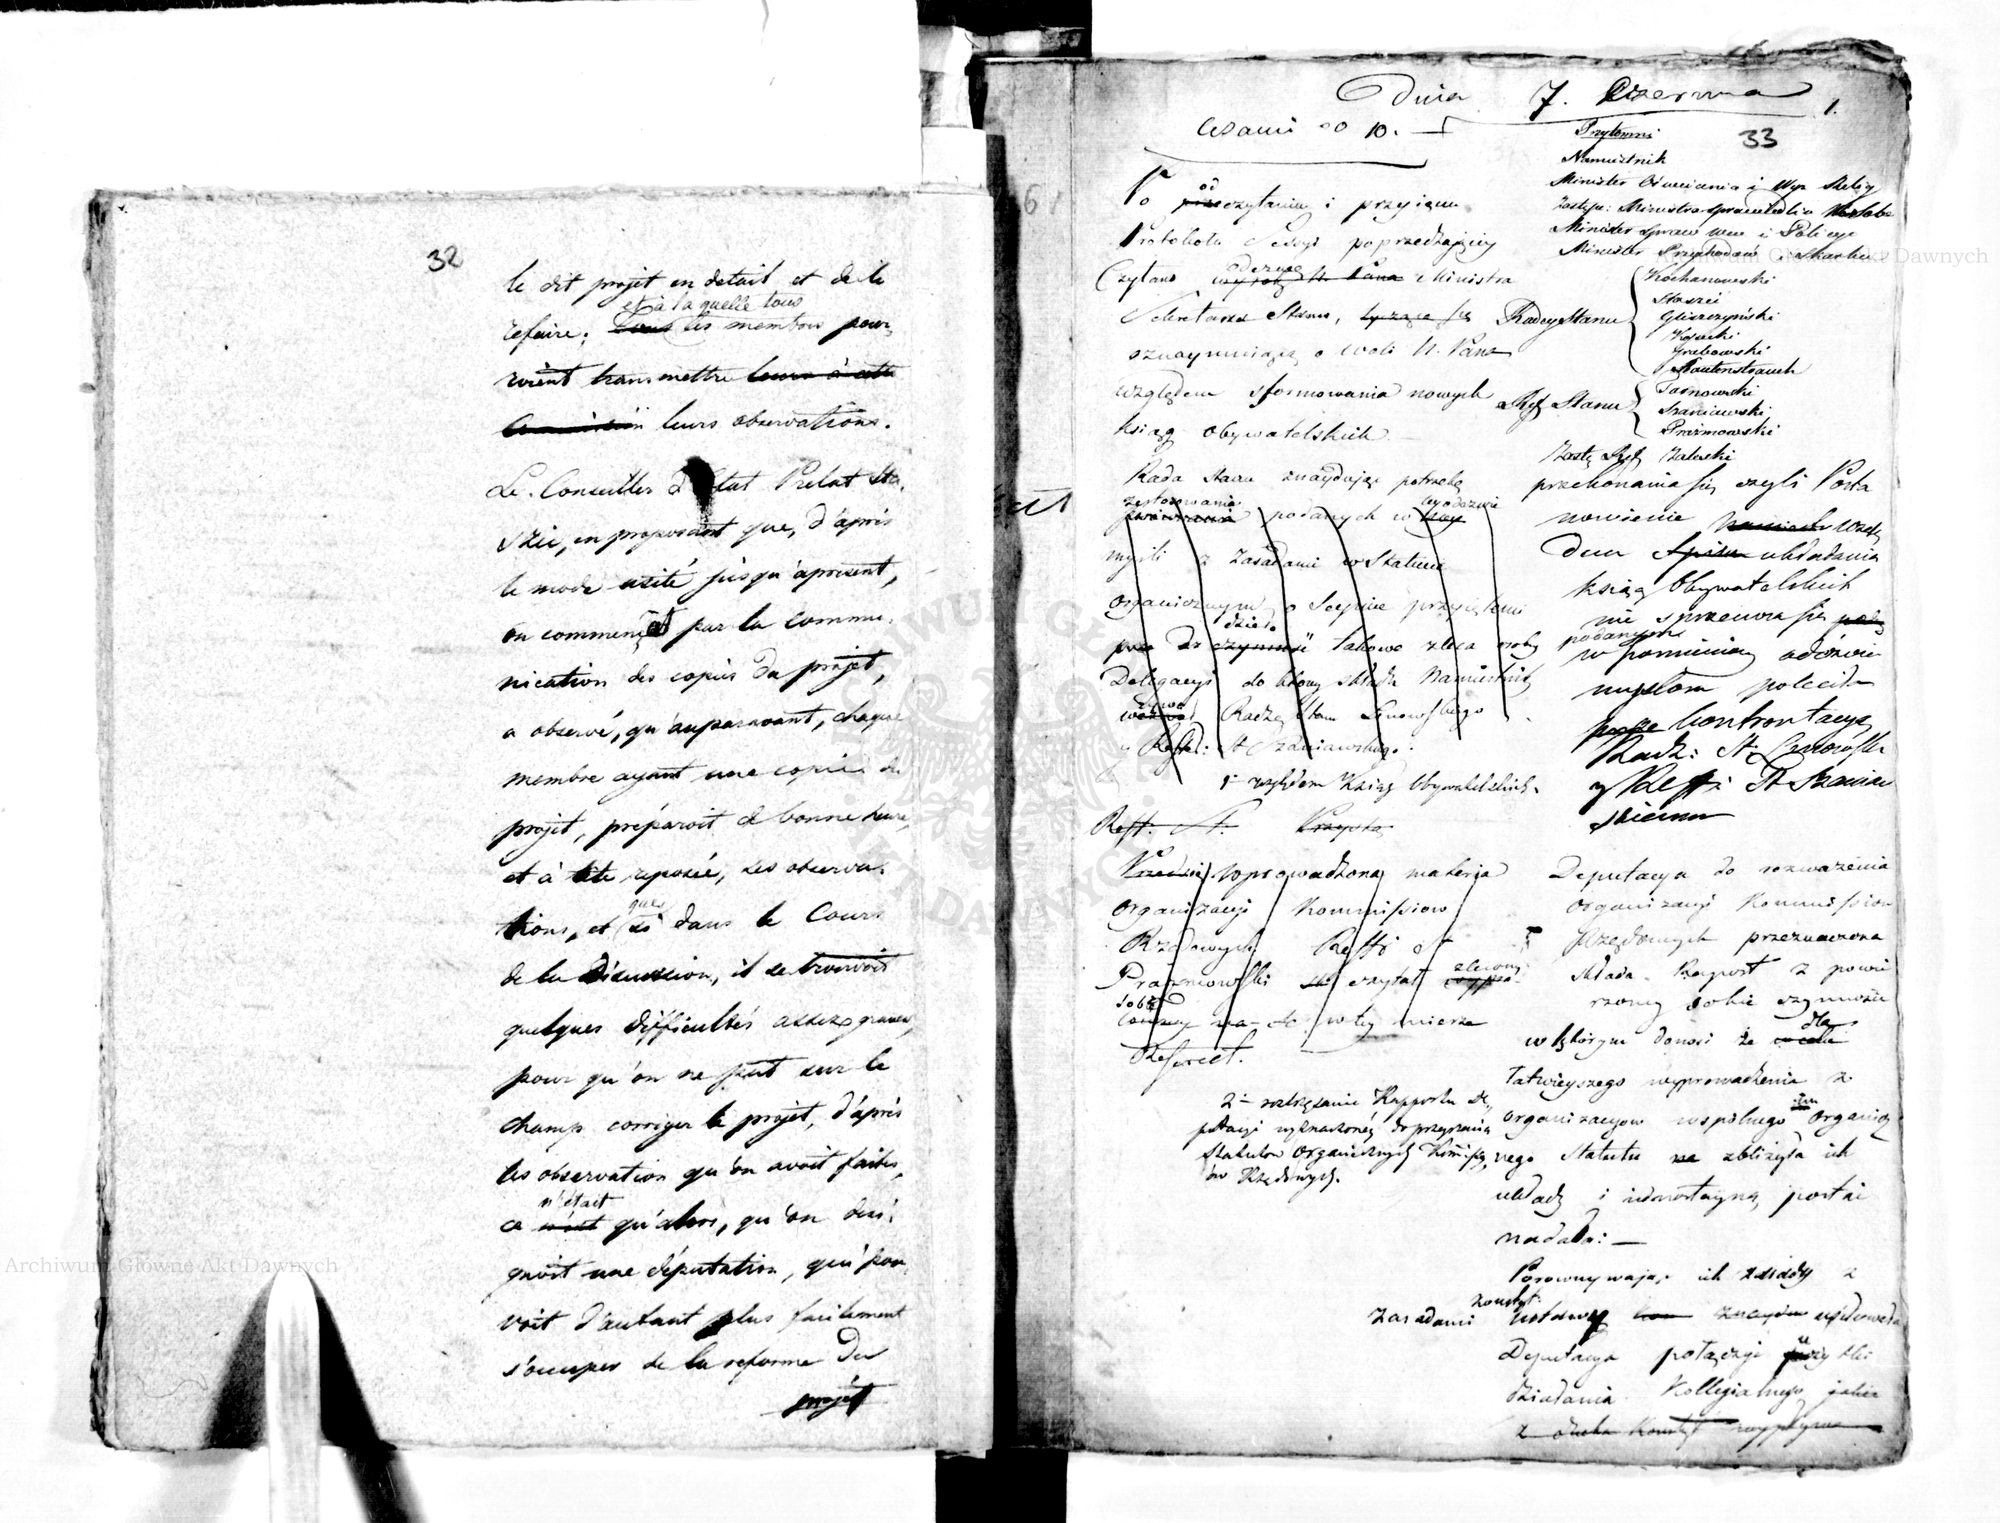 32
le dit projet en detail et de le
et à la quelle tous
refaire; tous les membres pour,
roient transmettre leurs à cette
leurs observations.
Le Conseiller d'Etat Prelat Sta,
szic, en proposant que, d'après
le mode usité jusqu'apresent,
on commençat par la commu,
nication des copies du projet,
a observé, qu'auparavant, chaque
membre ayant une copie du
projet, préparoit de bonne heure,
et à tête reposée, ses observa,
tions, et
que
si dans le Cours
de la discussion, il se trouvoit
quelques difficultés assez graves,
pour qu'on ne put sur le
champ corriger le projet, d'après
les observation qu'on avoit faites,
n'était
ce qu'alors, qu'on desi,
gnoit une députation, qui pou,
voit d'autant plus facilement
s'occuper de la reforme du
projet
Dnia 7. Czerwca
1.
33
Czasani 00 10.
Przytomni
Namiestnik
Minister Oświecenia i Wyz Relig
Zastęp: Ministra Sprawiedliw
Minister Spraw Wew i Policyi
Minister Przychodow i Skarbu
Radcy Stanu
Kochanowski
Staszic
Gliszczyński
Kossecki
Grabowski
Rautenstrauch
Reff Stanu
Tarnowski
Szaniawski
Prażmowski
Zastę Reff Zaleski
od
Po czytaniu i przyięciu
Protokołu Sessyi poprzedzaiący
odezwę
Czytano Ministra
Sekretarza Stanu,
oznaymuiącą o woli N. Pana
względem sformowania nowych
ksiąg obywatelskich
Rada Stanu znayduiąc potrzebę
zestosowania podanych w odezwie
myśli z zasadami w Statucie
organicznym o Seymie przyiętemi
dzieło
takowe zleca osobny
Delegacyi do który składu Namiestnik
wezwał Radzcę Stanu Linowskiego
y Reffer: St Szaniawskiego.
1° względem Ksiąg Obywatelskich.
Reff. St. Przeczyta
wprowadzona materja
organizacyi Kommissiow
Rządowych Reff St
Prażmowski czytał zlecony
sobie w tey mierze
Referat.
2° roztrząsanie Rapportu De,
putacyi wyznaczonéy do przeyrzenia
Statutów Organicznych Kommissy,
ów Rządowych.
przekonania się czyli Posta
nowienie wzglę
dem układania
ksiąg Obywatelskich
nie sprzeciwia się
podanym
w pomienioney odezwie
myslom poleciła
kontrontacyą
Radz: St. Linowski
y Reff: St Szaniaw
skiemu
Deputacya do rozważenia
organizacyi Kommissiow
Rządowych przeznaczona
składa Raport z powie
rzoney sobie czynności
w którym donosi że dla
łatwieyszego wyprowadzenia z
organizacyow wspolnego im Organicz
nego Statutu zbliżyła ich
układ i iednostayną postać
nadała: —
Porownywaiąc ich zasady z
zasadami konstyt: ustawy usiłowała
Deputacya połączyć
działania Kollegialnego jakie
z ducha Konstyt wypływa
Archiwum Główne Akt Dawnych